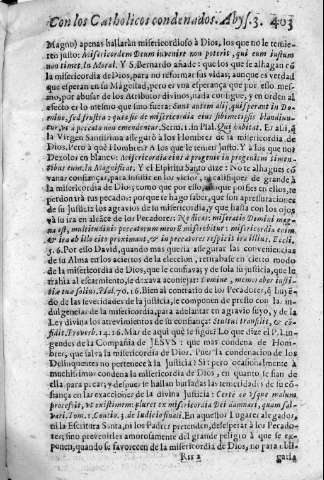 Con los Catholicos condenados. Abys. 3. 403
Magno) apenas hallaràn misericordioso à Dios, los que no le temieren
justo: Misericordem Deum invenire non poterit, qui eum iustum
non timet, In Moral. Y S. Bernardo añade: que los que se alhagan cō
la misericordia de Dios, para no reformar sus vidas, aunque es verdad
que esperan en su Magestad, pero es vna esperança que por ello mesmo,
por abusar de los Atributos divinos, nada consigue, y en orden al
efecto es lo mesmo que sino fuera: Sunt autem alij, qui sperant in Domino,
sed frustra: quia sic de misericordia eius sibimetipsis blandiuntur,
vt à peccato non emendentur. Serm. 1. in Psal. Qui habitat.
Virgen Santissima assegurò à los Hombres de la misericordia de
Dios. Pero à què Hombres? A los que le temen justo. Y à los que no?
Dexolos en blanco: Misericordia eius à progenie in progenies timentibus
eum. In Magnificat. Y el Espiritu Santo dize: No te alhagues cō
vanas confianças, para insistir en los vicios, califiques de grande à
la misericordia de Dios; como que por ello, que por ser en ellos, te
perdonarà tus pecados; porque te hago saber, que son apressuraciones
de su Justicia los agravios de su misericordia, y que hasta con los ojos
và su ira en alcance de los Pecadores: Ne dicas: miseratio Domini magna
est, multitudinis peccatorum meorū miserebitur: misericordia enim,
& ira ab illo citò proximant, & in peccatores respicit ira illius, Eccli.
5. 6. Por esso David, quando mas queria assegurar las conveniencias
de su Alma en los aciertos de la eleccion, retrataba en cierto modo
de la misericordia de Dios, que le confiava; y de sola su justicia, que le
traìa en alicionamiento, se dexava aconsejar: Domine, memorabor iustitiæ
tuæ solius, Psal. 70. 16. Bien al contrario de los Pecadores, que huyendo
de las severidades de la justicia, le componen de presto con las indulgencias
de la misericordia, para adelantar en agravio suyo, y de
la Ley divina los atrevimientos de su confiança: Stultus transilit, & cōfidit.
Proverb. 14. 16. Mar de aqui què se sigue? Lo que dize el P. Lingendes
de la Compañia de JESVS: que mas condena de Hombres,
que salva la misericordia de Dios. Pues la condenacion de los
Delinquentes no pertenece à la Justicia? Si: pero ocasionalmente à
muchissimos condena la misericordia de Dios, en quanto se fian de
ella para pecar; y despues se hallan burladas las temeridades de su cōfiança
en las execuciones de la divina Justicia: Certe eo vsque malum
processit, vt existimem: plures ex misericordia Dei damnari, quam salvari.
Tom. 1. Concio. 3. de Iudicio finali. En aquellos Lugares alegados,
ni la Escritura Santa, ni los Padres pretenden, desesperar à los Pecadores;
sino prevenirles amorosamente del grande peligro à que se exponen,
quando se favorecen de la misericordia de Dios, no siguiendo
Rrr 2
garla